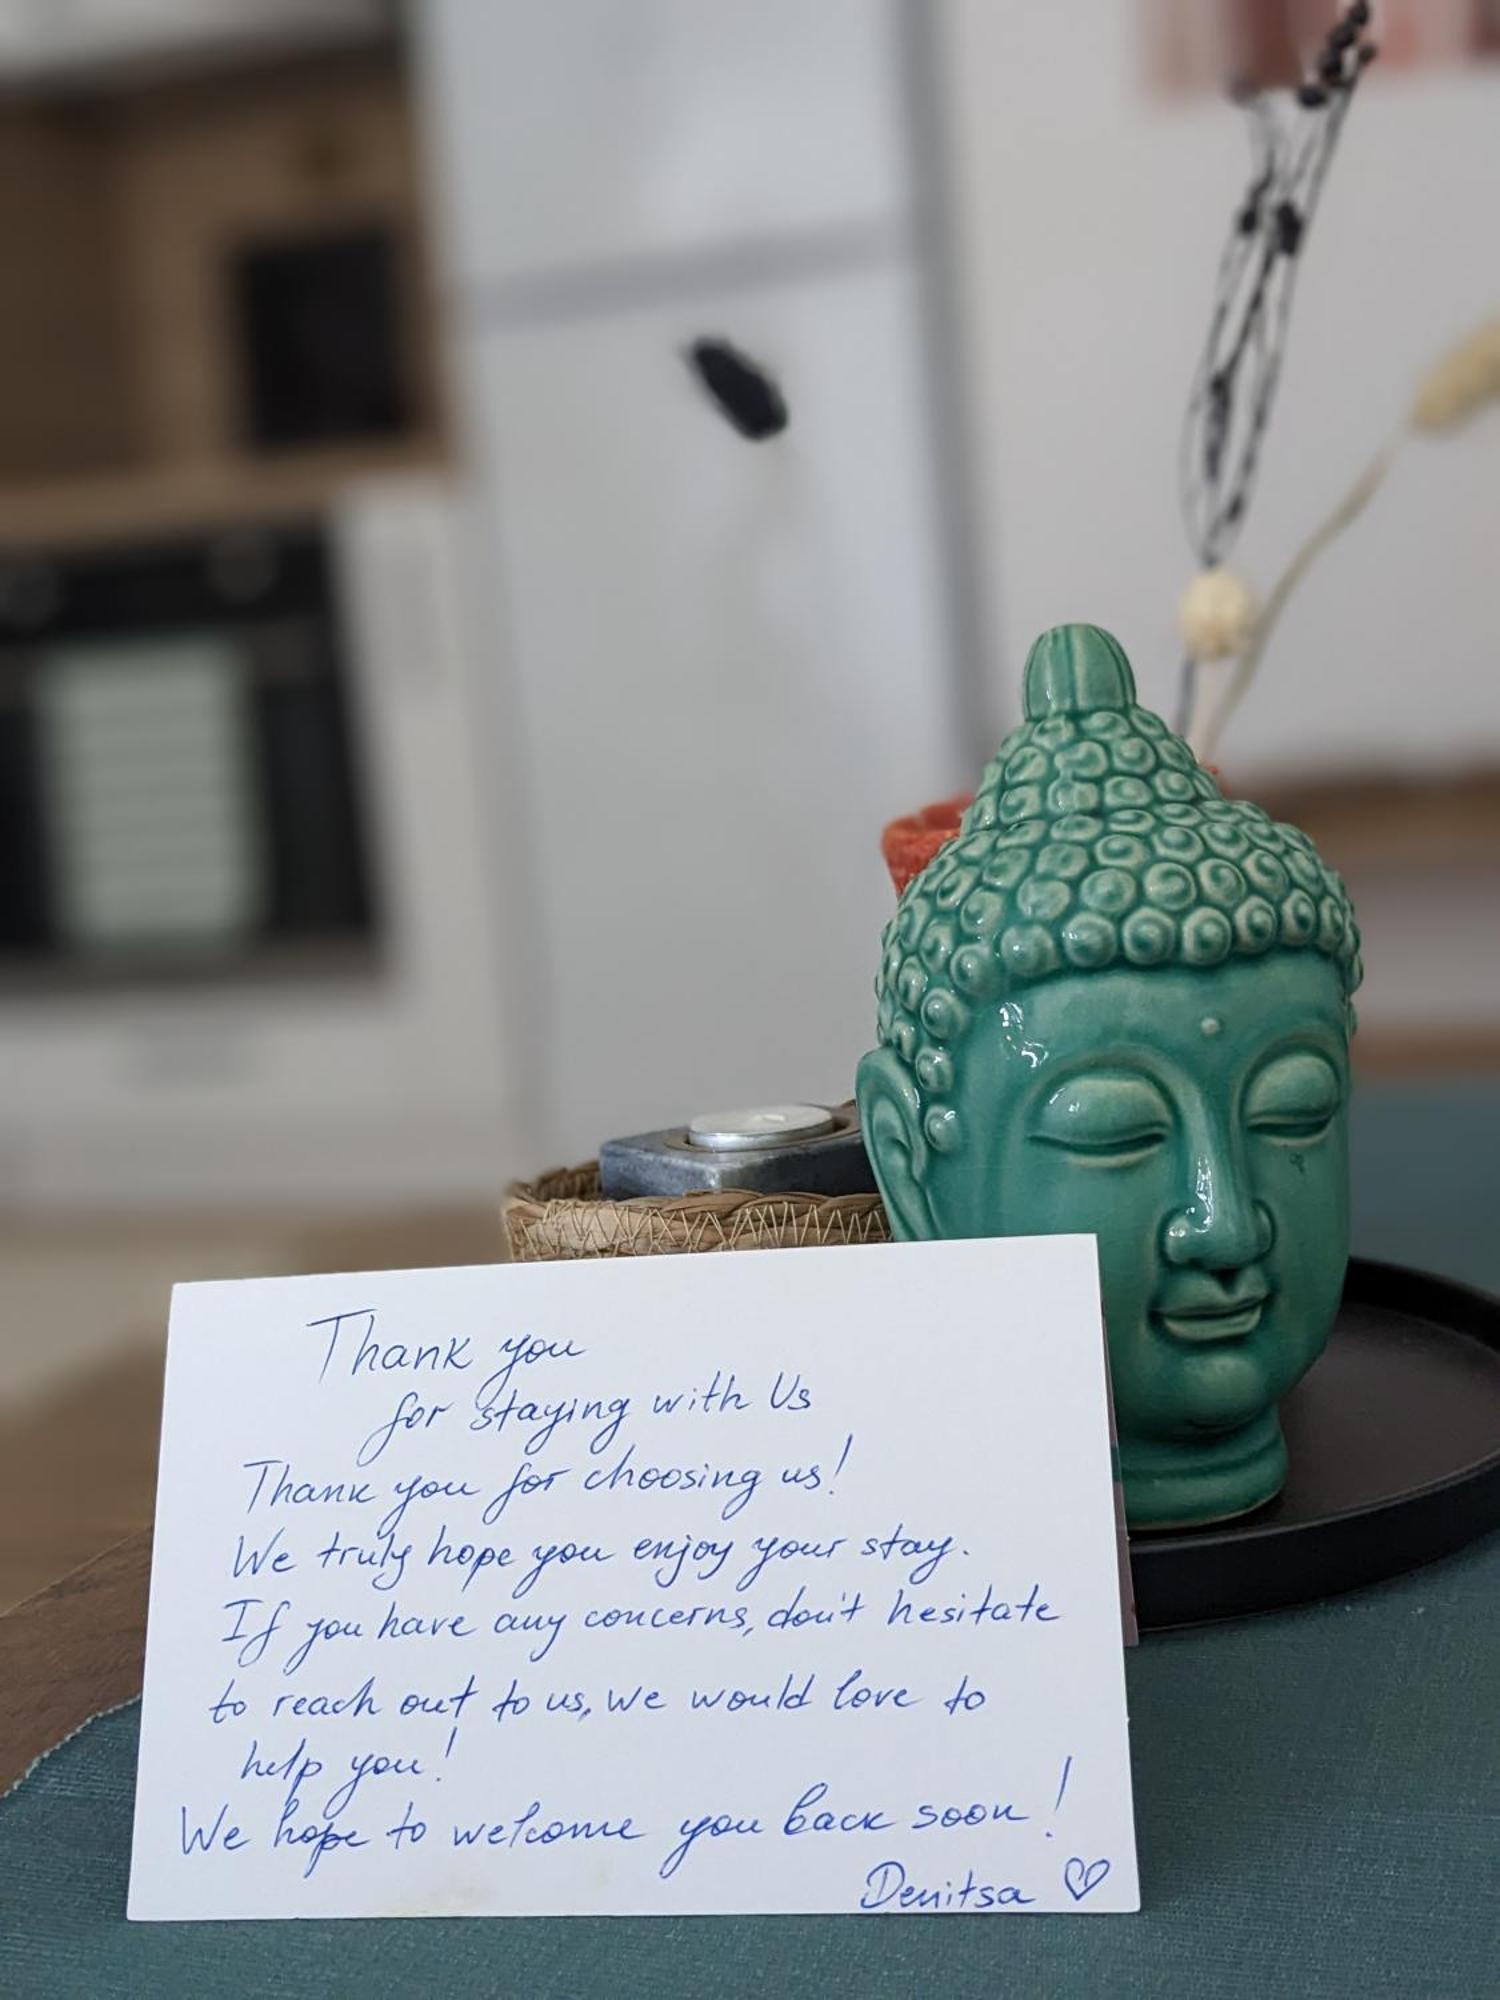 Thank you
for staying with Us
Thank you for choosing us!
We truly hope you enjoy your stay.
If you have any concerns, don't hesitate
to reach out to us, we would love to
help you!
We hope to welcome you back soon!
Denitsa ♡